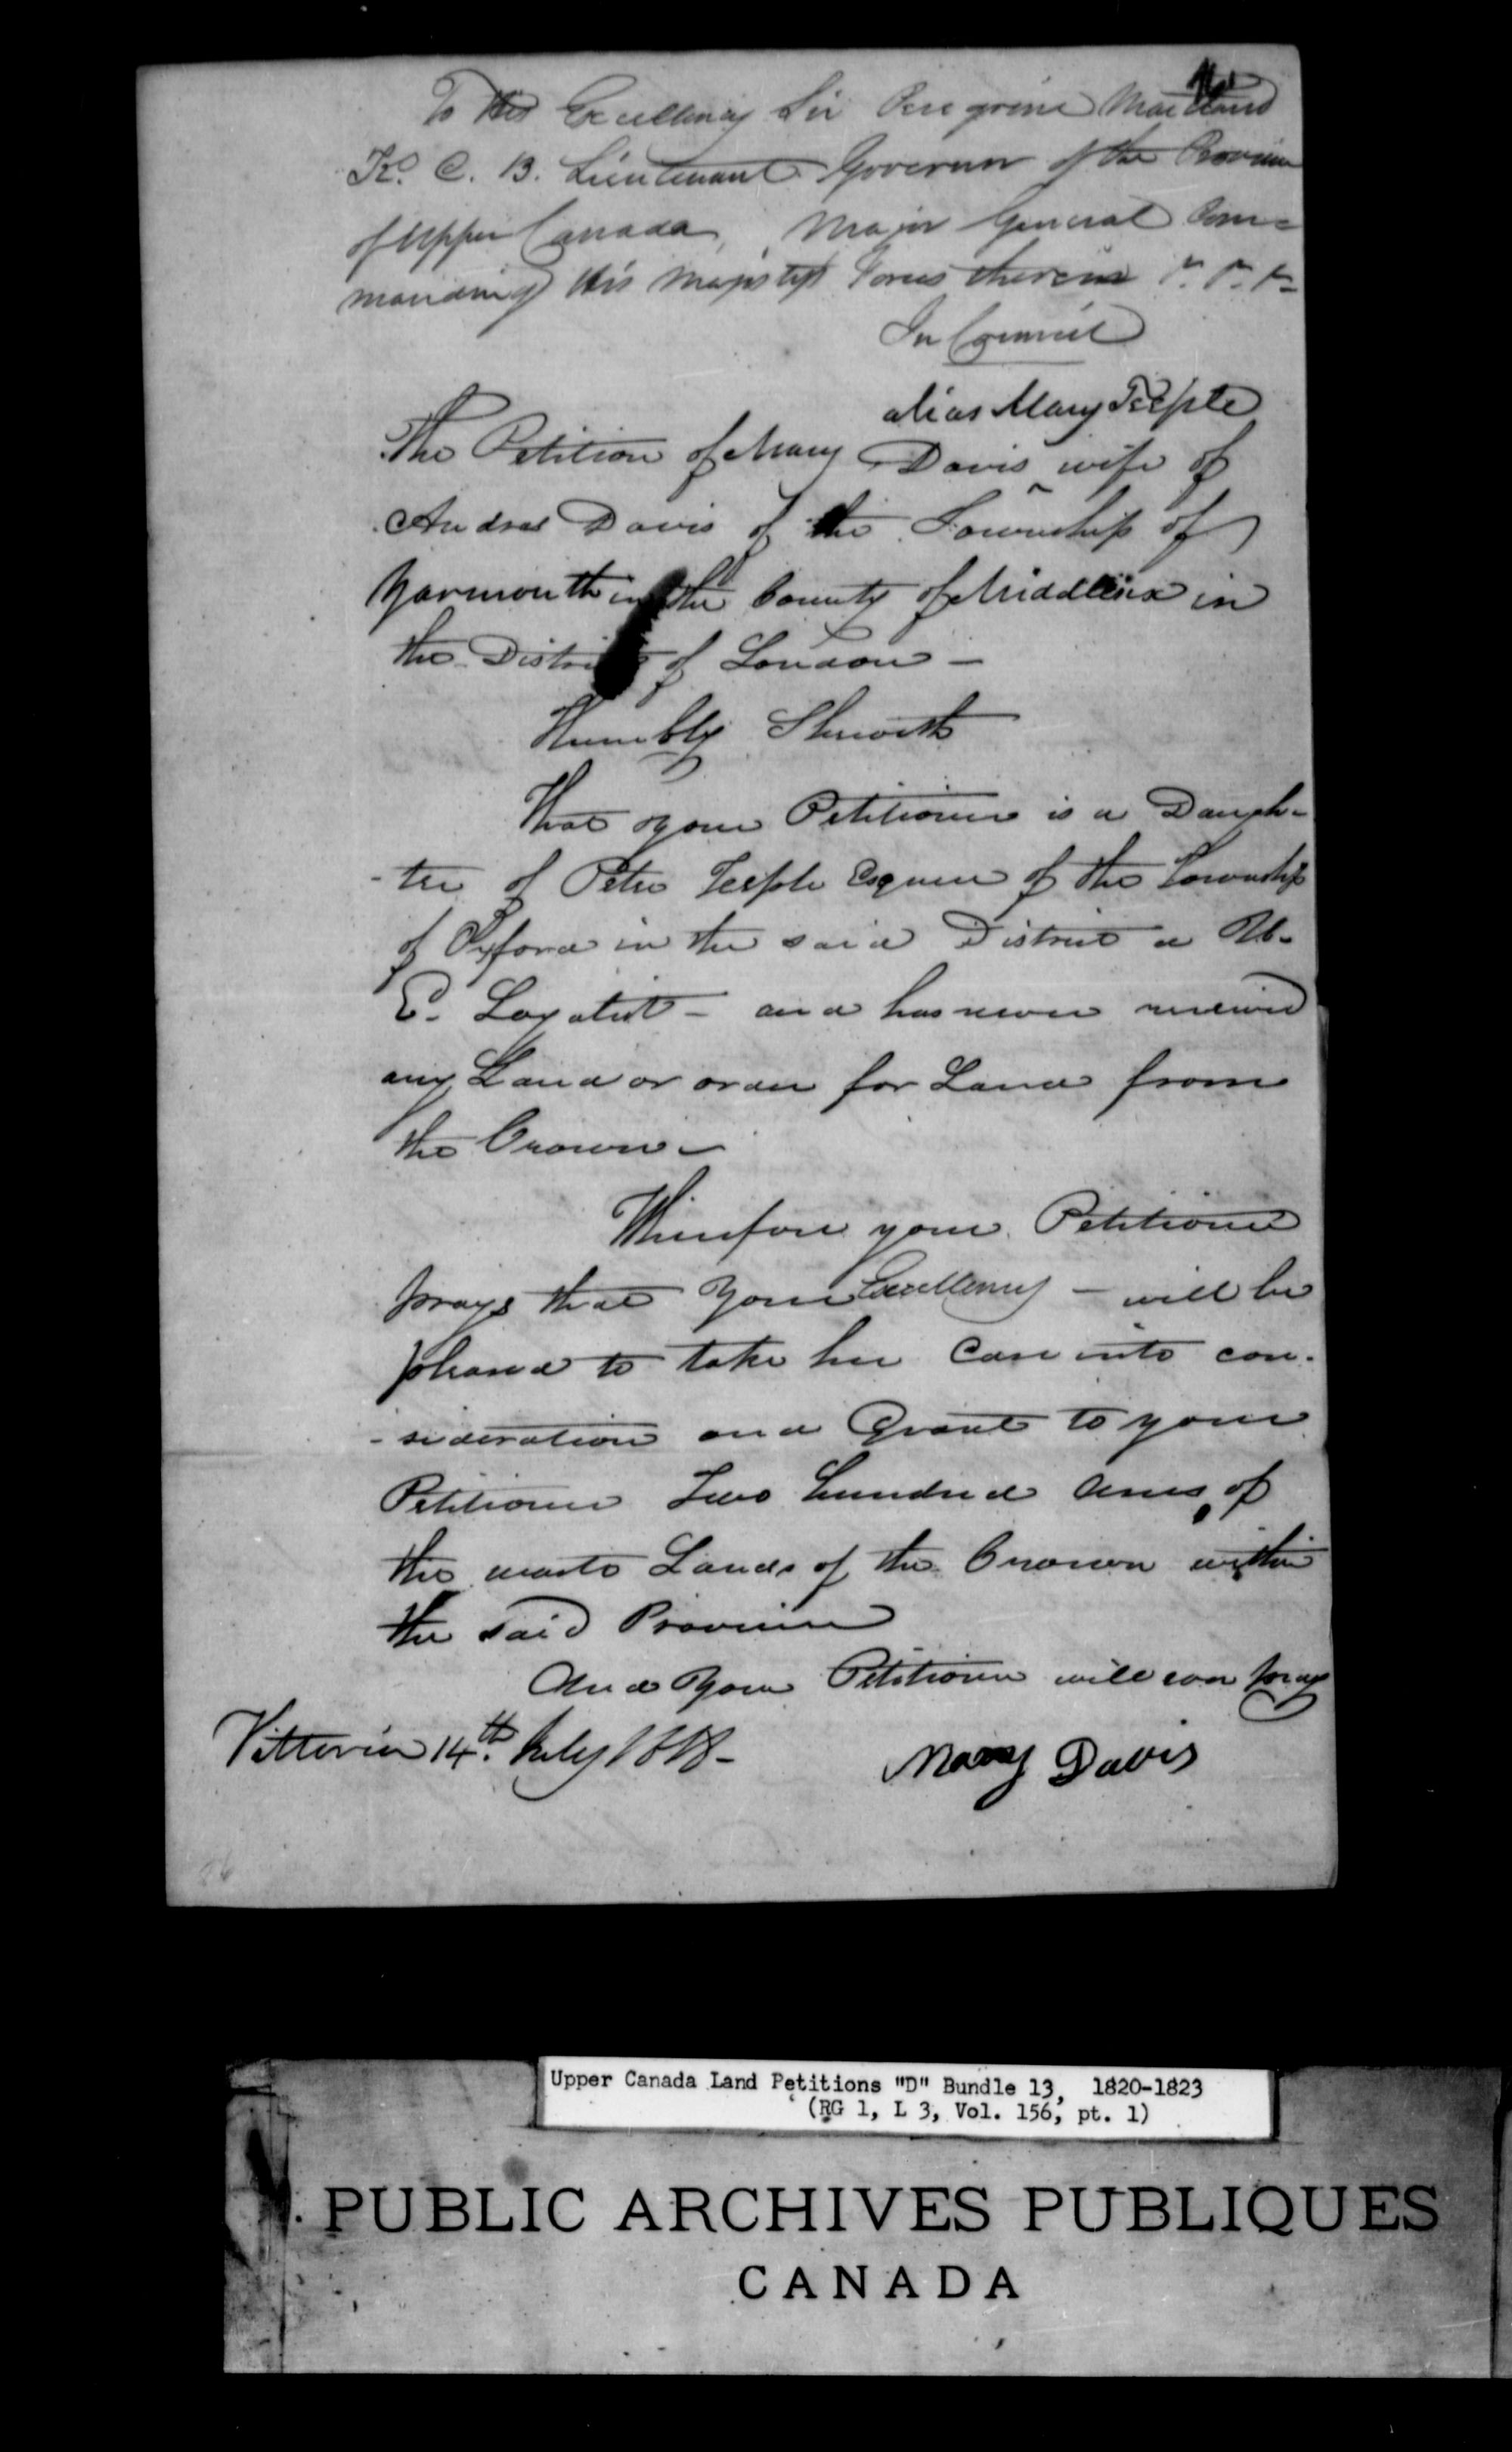 To His Excellency Sir Peregrine Maitland
K. C. B. Lieutenant Governor of the Province
of Upper Canada, Major General Com=
manding His Majestys Forces therein &c. &c. &c.
In Council
alias Mary Teeple
The Petition of Mary Davis ^ wife of
Andrew Davis of the Township of
Yarmouth in the County of Middlesex in
the District of London -
Humbly Sheweth
That your Petitioner is a Daugh-
-ter of Peter Teeple Esquire of the Township
of Oxford in the said District a U.
E. Loyalist - and has never received
any Land or order for Land from
the Crown -
Wherefore your Petitioner
prays that Your Excellency - will be
pleased to take her Case into con-
-sideration and Grant to your
Petitioner Two hundred Acres of
the waste Lands of the Crown within
the said Province
And Your Petitioner will ever pray
Vittoria 14th. July 1818 -
Mary Davis
Upper Canada Land Petitions "D" Bundle 13, 1820-1823
(RG 1, L 3, Vol. 156, pt. 1)
PUBLIC ARCHIVES PUBLIQUES
CANADA